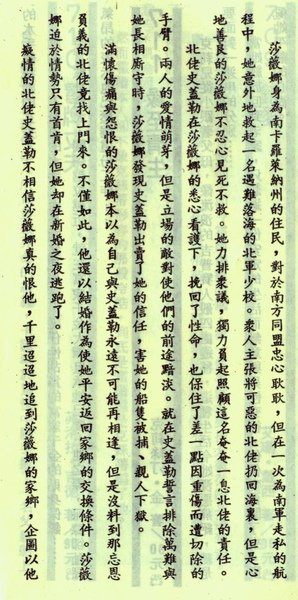 莎薇娜身為南卡羅萊納州的住民，對於南方同盟忠心耿耿，但在一次為南軍走私的航
程中，她意外地救起一名遇難落海的北軍少校。衆人主張將可惡的北佬扔回海裏，但是心
地善良的莎薇娜不忍心見死不救。她力排衆議，獨力員起照顧這名奄奄一息北佬的責任。
北佬史蓋勒在莎薇娜的悉心看護下，挽回了性命，也保住了差一點因重傷而遭切除的
手臂。兩人的愛情萌芽，但是立場的敵對使他們的前途黯淡。就在史蓋勒誓言排除萬難與
她長相廝守時，莎薇娜發現史蓋勒出賣了她的信任，害她的船隻被捕、親人下獄。
滿懷傷痛與怨恨的莎薇娜本以為自己與史蓋勒永遠不可能再相逢，但是沒料到那忘恩
員義的北佬竟找上門來。不僅如此，他還以結婚作為使她平安返回家鄉的交換條件。莎薇
娜迫於情勢只有首肯，但她却在新婚之夜逃跑了。
癡情的北佬史蓋勒不相信莎薇娜真的恨他，千里迢迢地追到莎薇娜的家鄉，企圖以他